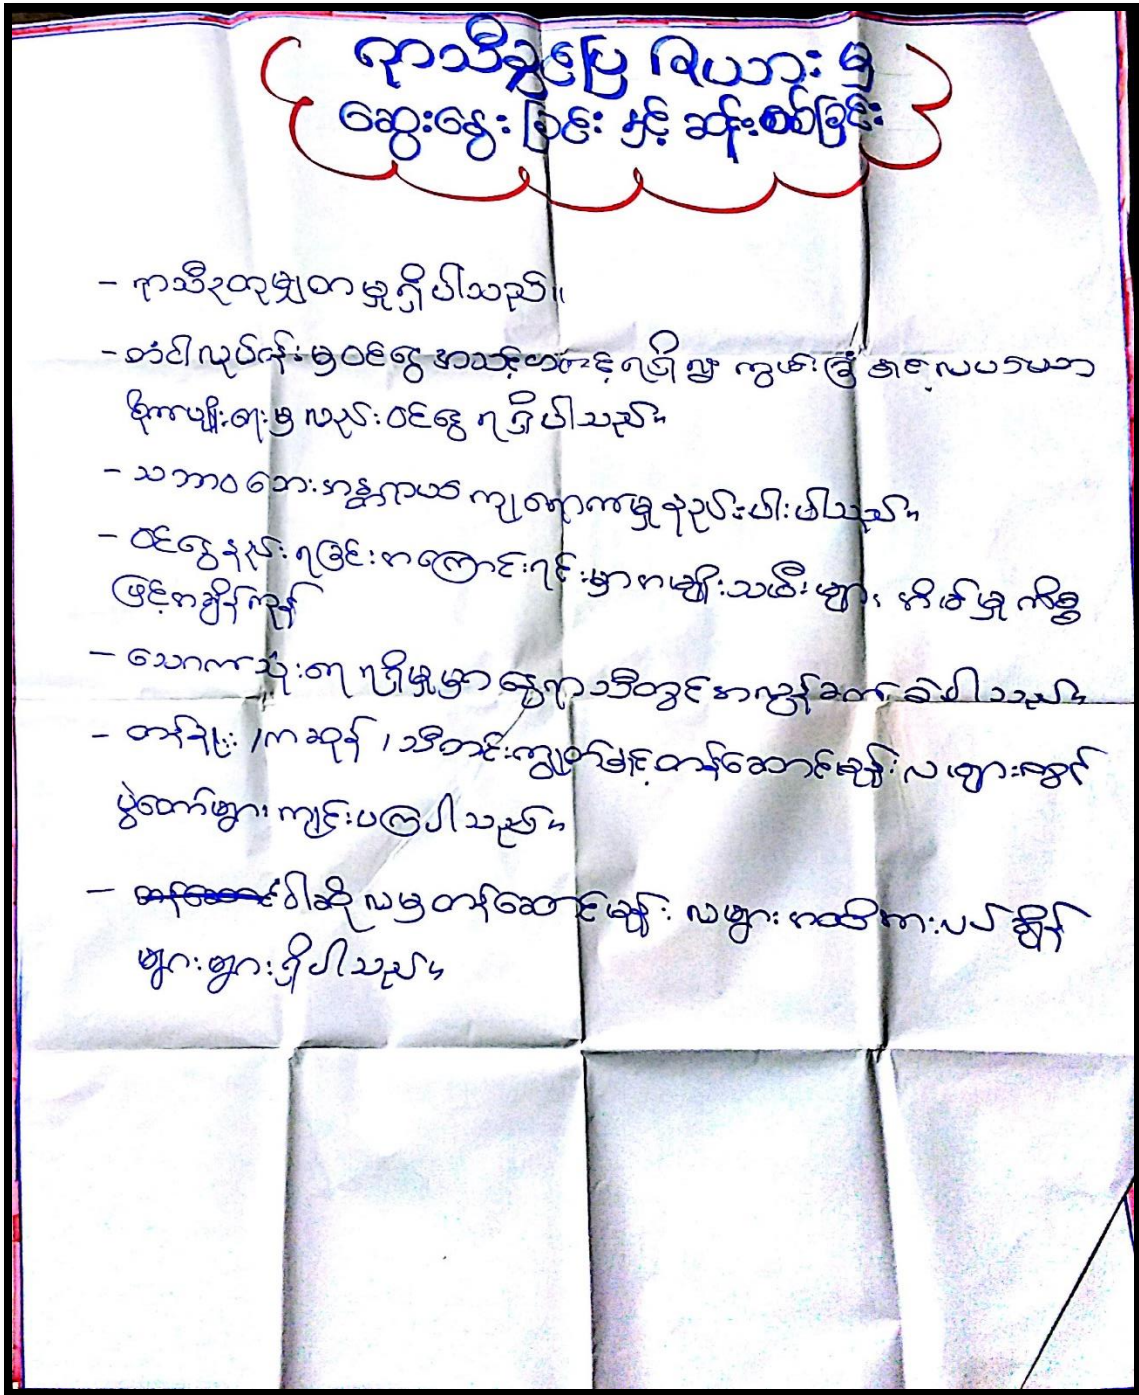 ရာသီခွင်ပြ ဇယားမှ
ဆွေးနွေးခြင်းနှင့် ဆန်းစစ်ခြင်း
- ရာသီဥတုမျှတမှုရှိပါသည်။
- တံငါလုပ်ငန်းမှဝင်ငွေအသင့်အတင့်ရရှိ၍ ကွမ်းခြံ နှင့် လယ်ယာ
စိုက်ပျိုးရေးမှလည်းဝင်ငွေရရှိပါသည်။
- သဘာဝဘေးအန္တရာယ်ကျရောက်မှုနည်းပါးပါသည်။
- ဝင်ငွေနည်းရခြင်းအကြောင်းရင်းမှာအမျိုးသမီးများ အိမ်မှုကိစ္စ
ဖြင့်အချိန်ကုန်
- သောက်သုံးရေရရှိမှုမှာနွေရာသီတွင်အလွန်ခက်ခဲပါသည်။
- တန်ခူး၊ ကဆုန်၊ သီတင်းကျွတ်နှင့်တန်ဆောင်မုန်းလများတွင်
ပွဲတော်များကျင်းပကြပါသည်။
- ဝါဆိုလမှတန်ဆောင်မုန်း လများအထိအားလပ်ချိန်
များများရှိပါသည်။